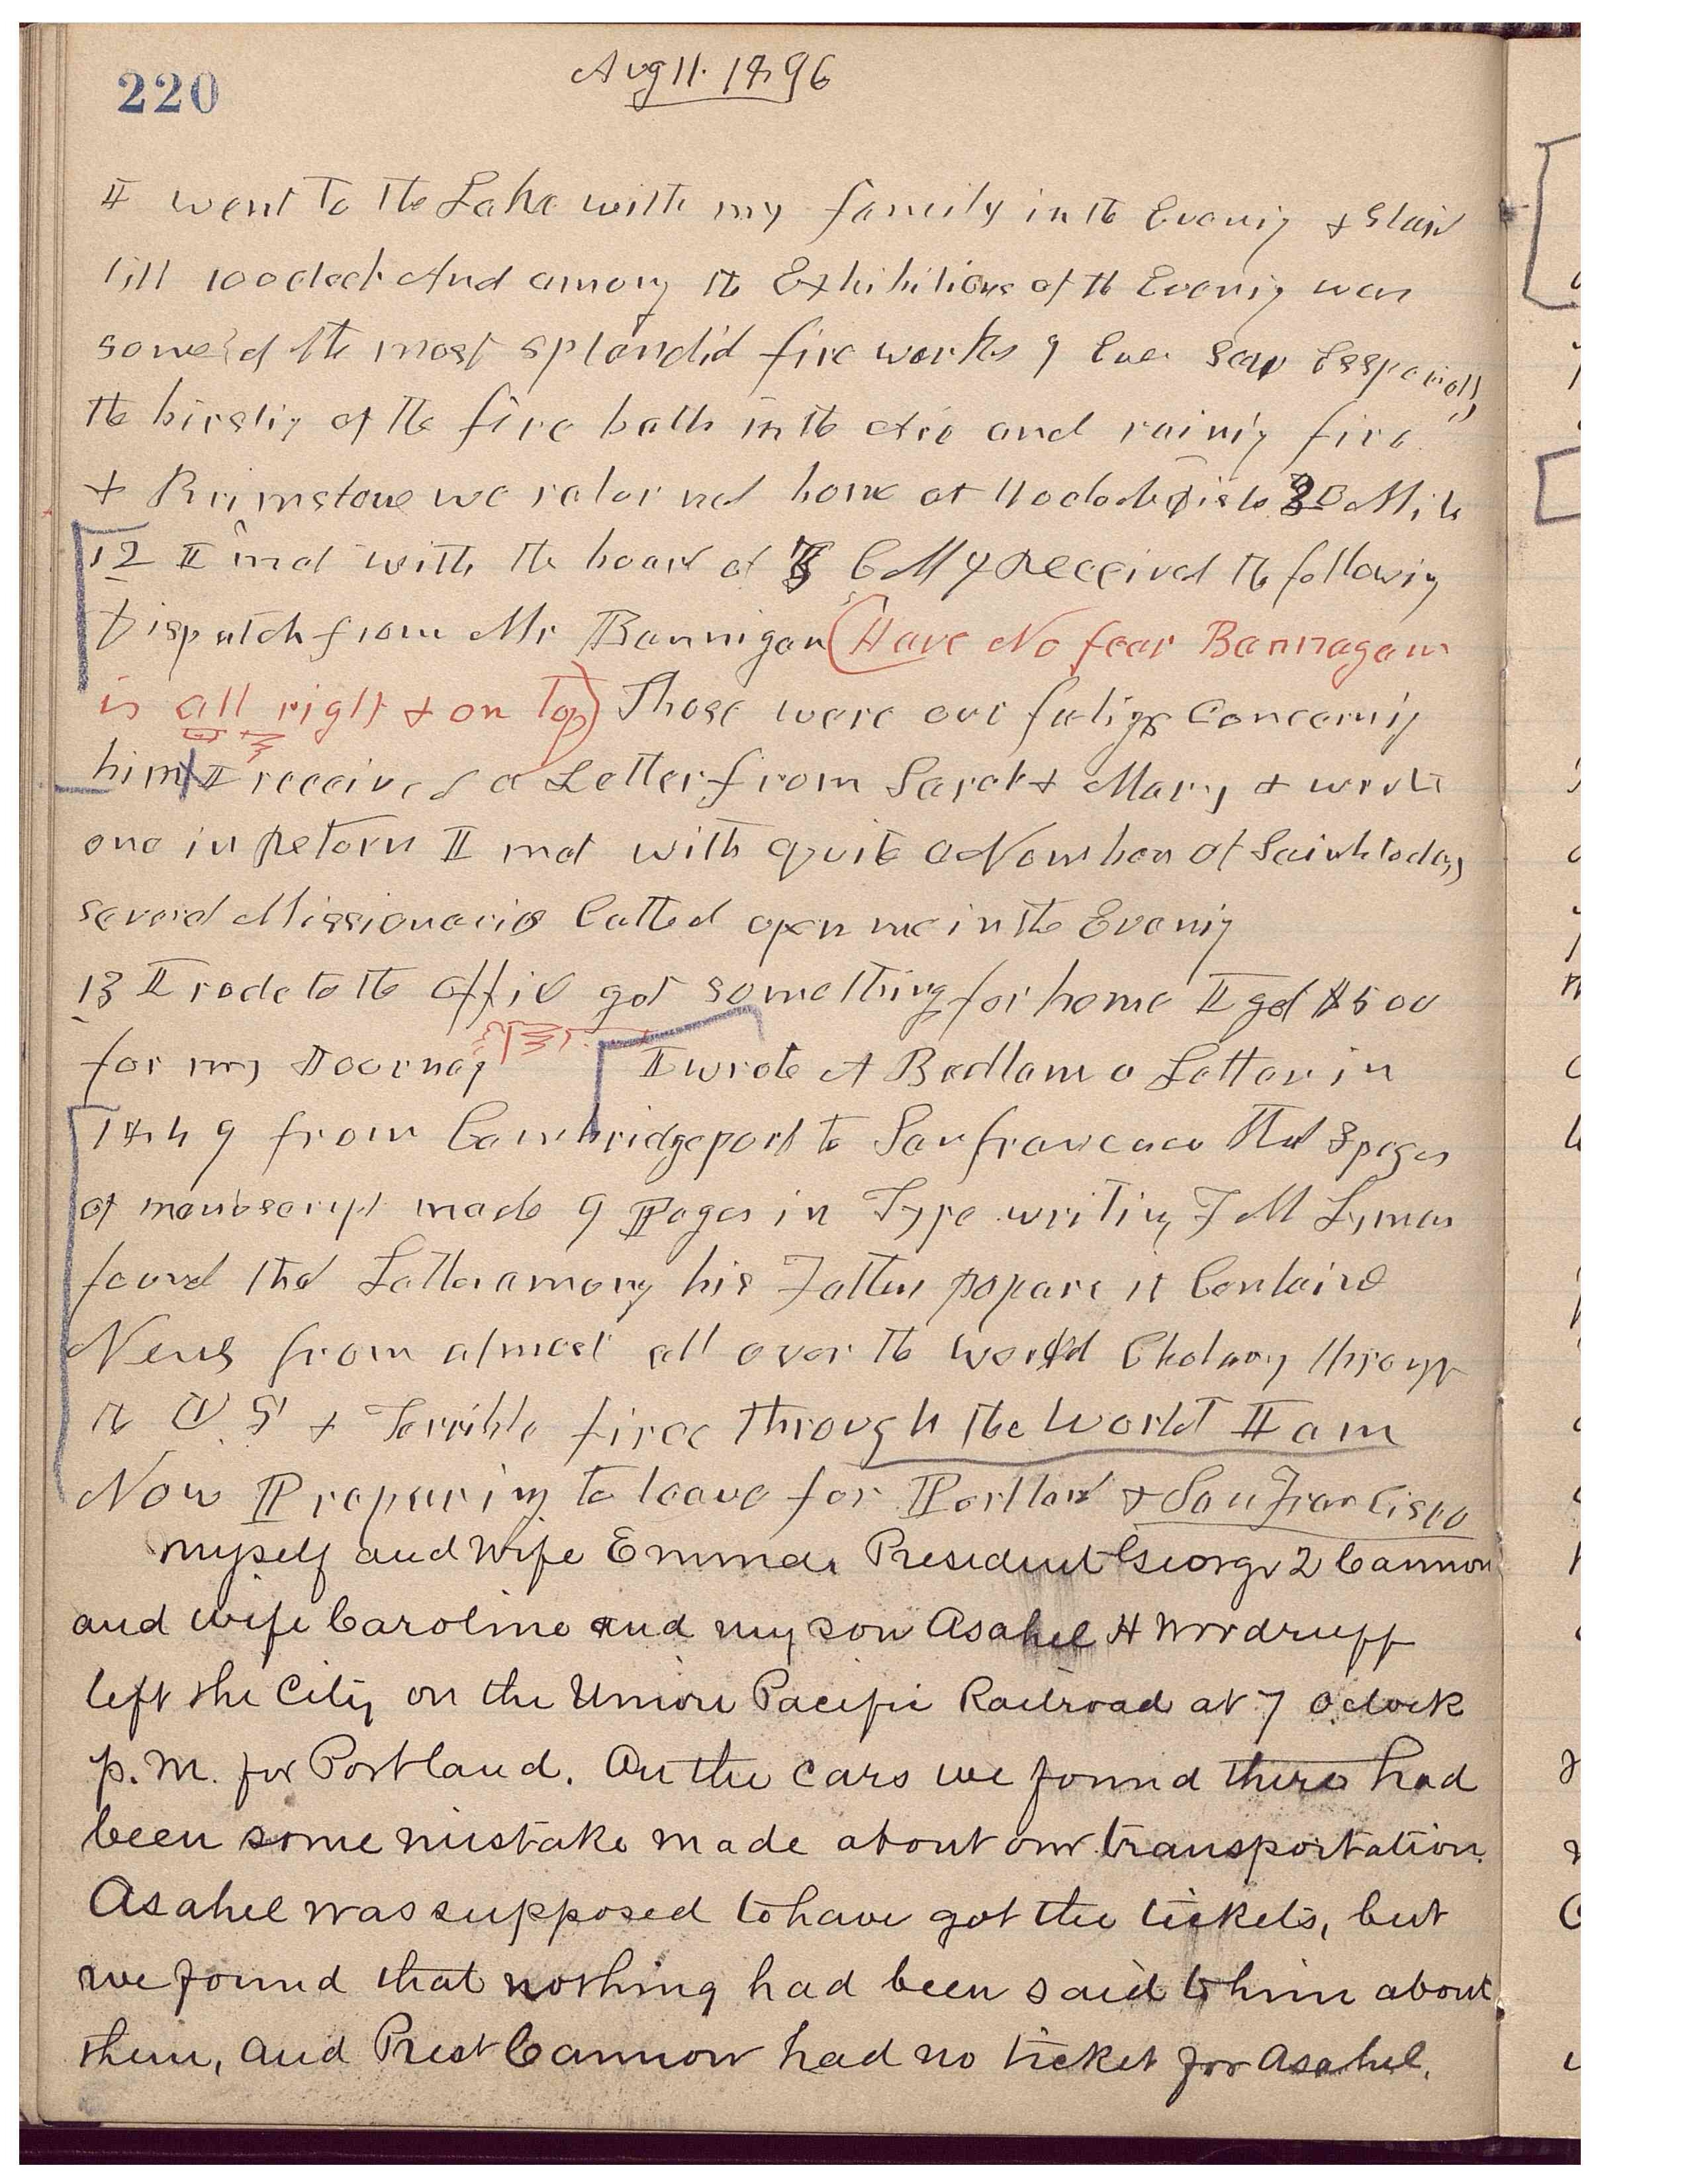 220
Aug 11. 1896
I went to the Lake with my family in the Evenig & staid
till 10 oclock And among the Exhibitions of the Evenig was
some of the most splendid fire works I Ever saw Esspecially
the birstig of the fire balls in the Air and rainig fire
& Brimstone we retorned home at 11 oclock Dist 30 Mils
12 I met with the board of B C M & Received the following
Dispatch from Mr Bannigan (Have No fear Bannagan
is all right & on Top) Those were our feligs Concernig
him I received a Letter from Sarah & Mary & wrote
one in Return I met with quite a Number of Saints today
several Missionaries Called upon me in the Evenig
13 I rode to the office got something for home I got $500
for my Journey I wrote A Badlam a Letter in
1849 from Cambridgeport to Sanfrancisco that 8 pages
of manuscript made 9 Pages in Type writing F M Lyman
found that Letter among his Fathers papers it Contaird
News from almost all over the world Cholary through
the U S & Terrible fires through the World I am
Now Preparing to leave for Portland & San Francisco
myself and wife Emma, President George 2 Cannon
and wife Caroline and my son Asahel H Woodruff
left the City on the Union Pacific Railroad at 7 o'clock
p.m. for Portland. On the cars we found there had
been some mistake made about our transportation.
Asahel was supposed to have got the tickets, but
we found that nothing had been said to him about
them, and Prest Cannon had no ticket for Asahel.